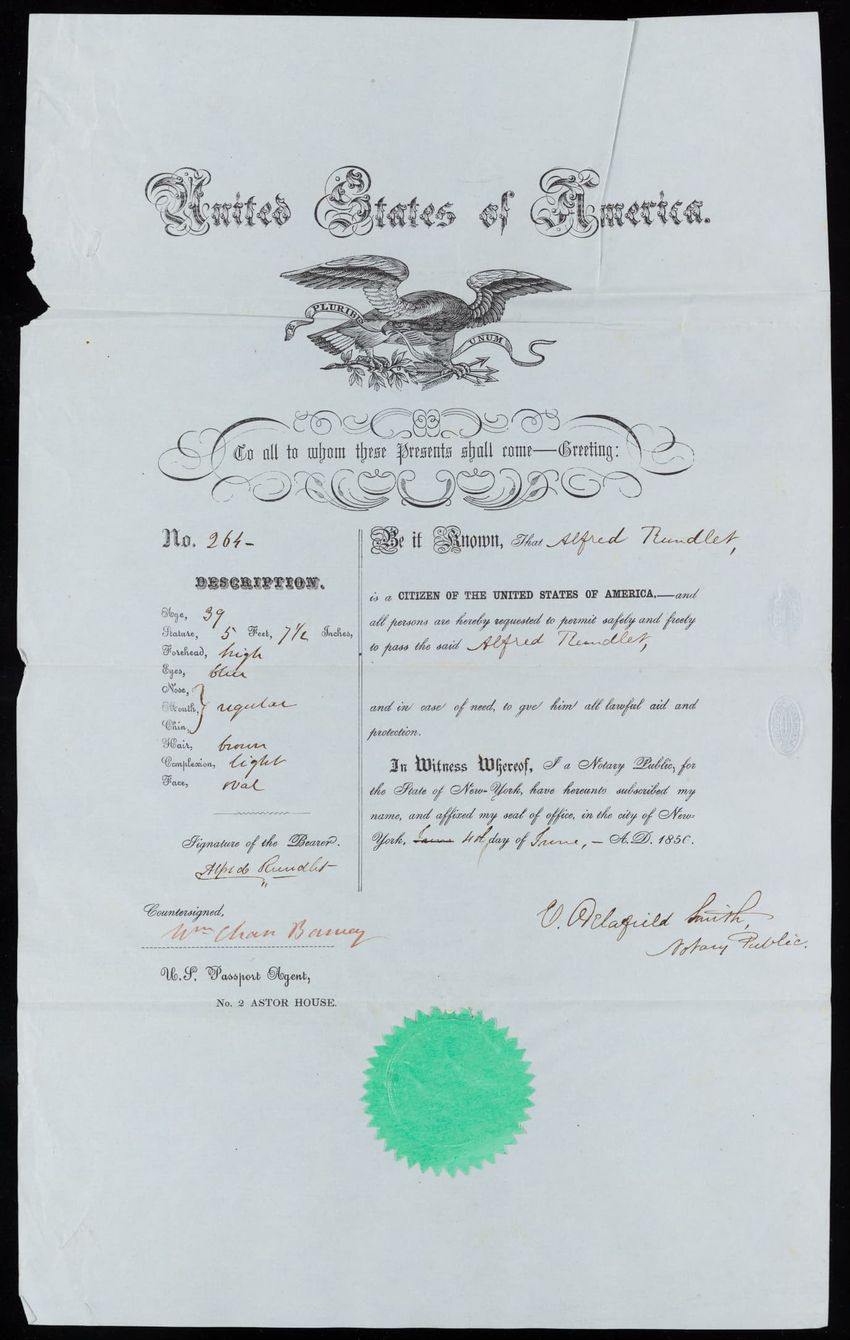 United States of America.
E PLURIBUS UNUM
To all to whom these Presents shall come—Greeting:
No. 264-
DESCRIPTION.
Age, 39
Stature, 5 Feet, 7 1/2 Inches,
Forehead, high
Eyes, blue
Nose,
Mouth, } regular
Chin,
Hair, brown
Complexion, light
Face, oval
Signature of the Bearer.
Alfred Rundlet
Countersigned,
Wm Chas Barney
U.S. Passport Agent,
No. 2 ASTOR HOUSE.
Be it Known, That Alfred Rundlet,
is a CITIZEN OF THE UNITED STATES OF AMERICA,—and
all persons are hereby requested to permit safely and freely
to pass the said Alfred Rundlet,
and in case of need, to gve him all lawful aid and
protection.
In Witness Whereof, I a Notary Public, for
the State of New-York, have hereunto subscribed my
name, and affixed my seal of office, in the city of New-
York, June 4th day of June, – A.D. 1856.
E. Delafield Smith,
Notary Public.